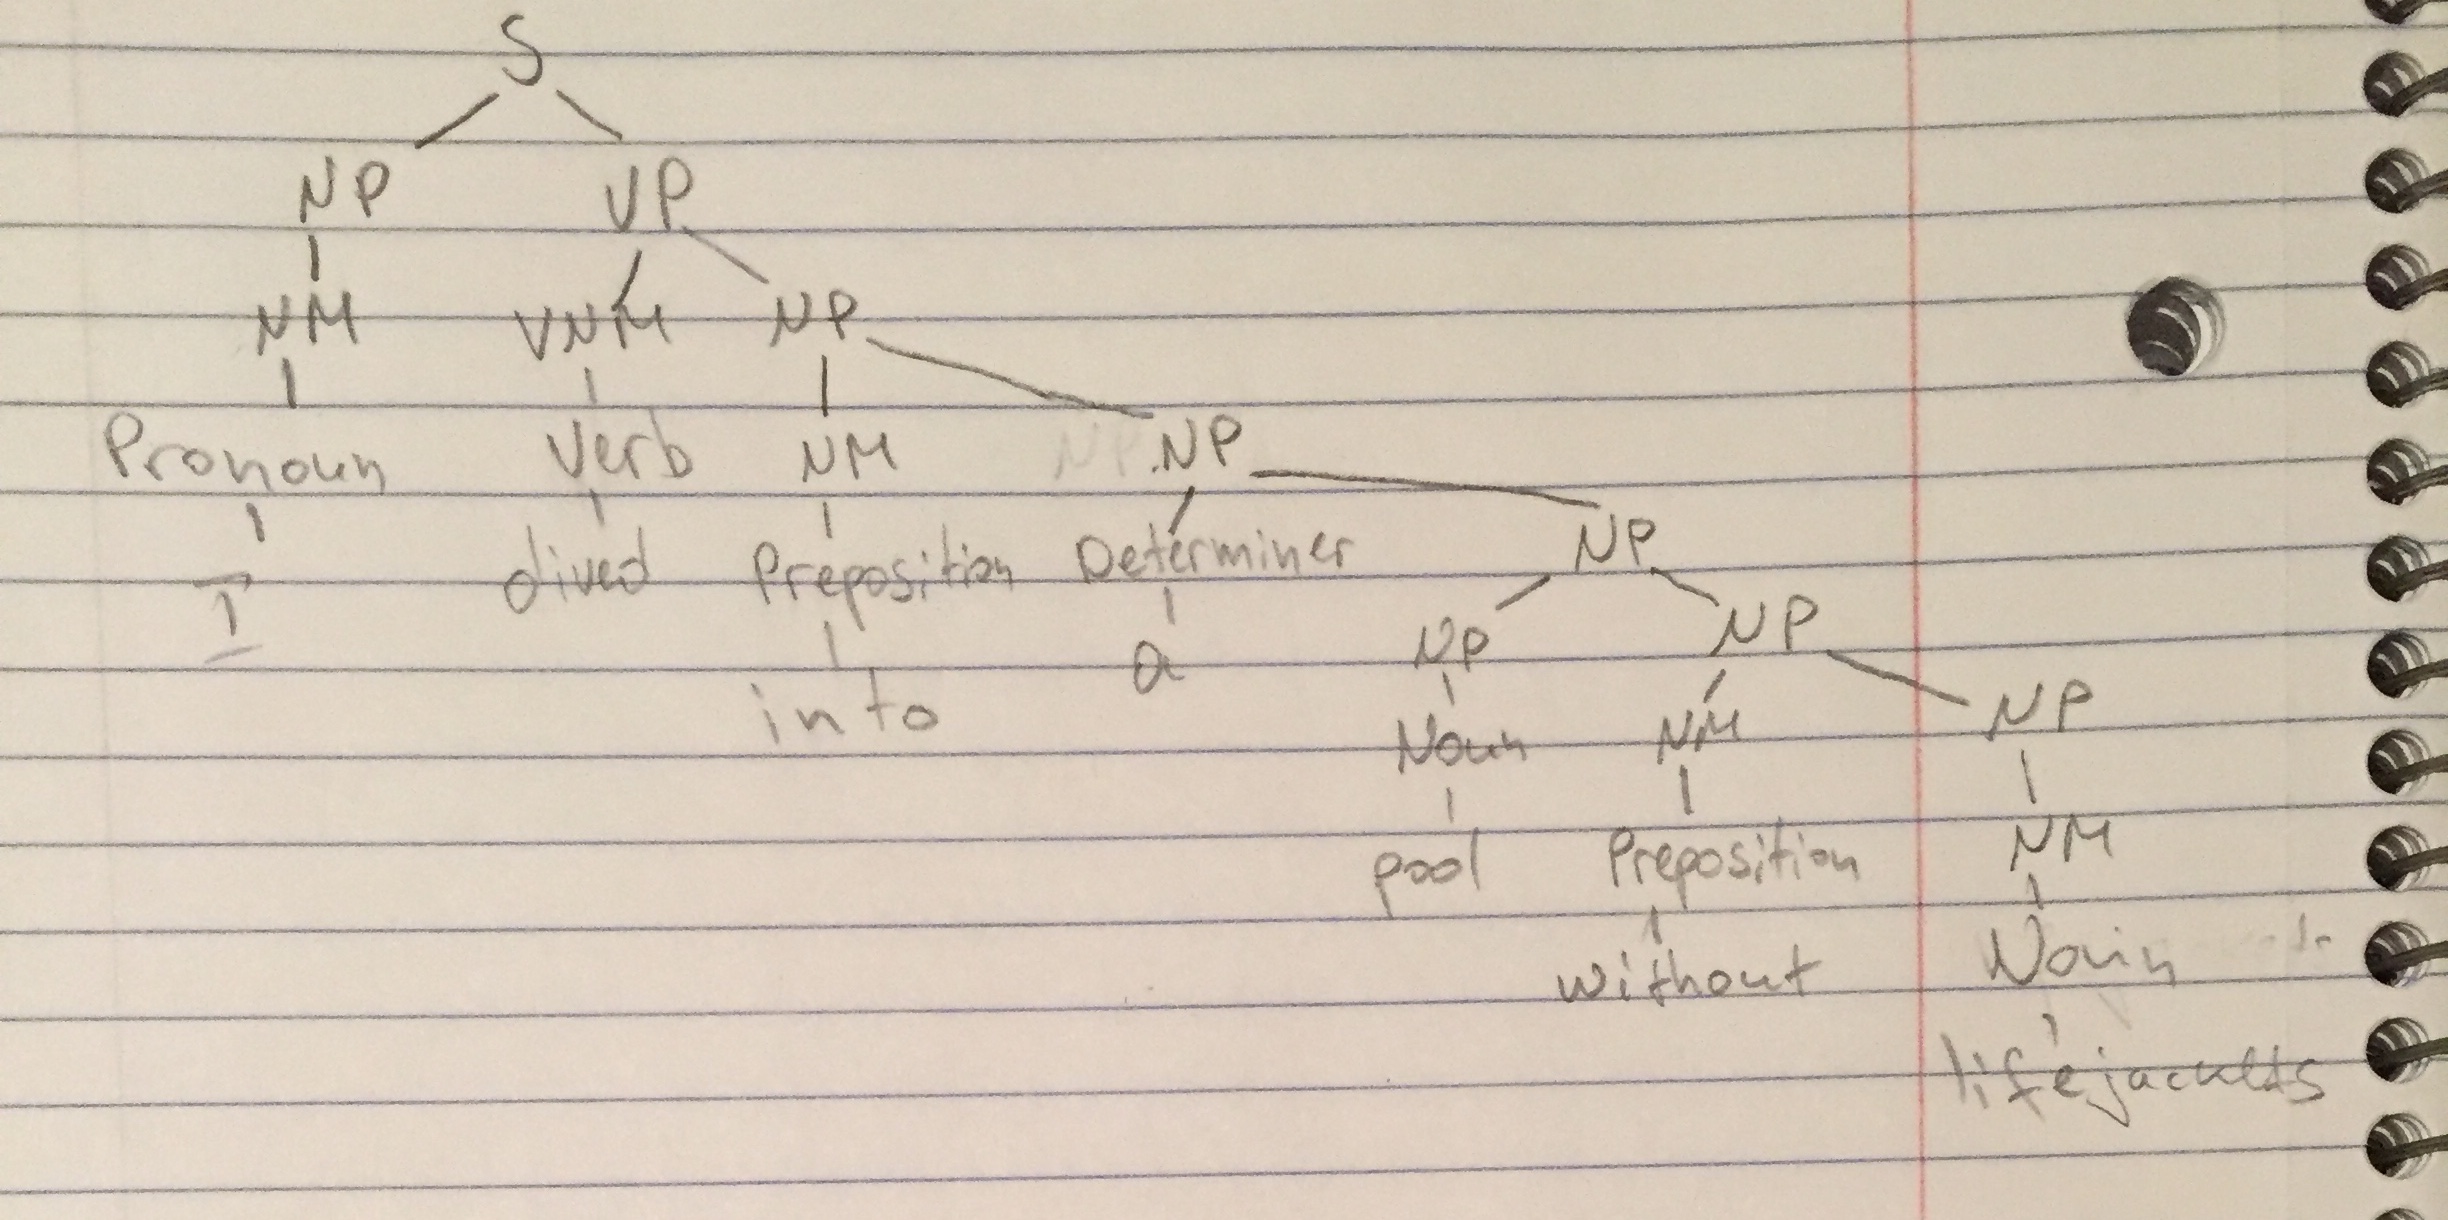 S
NP VP
NM VNM NP
Pronoun Verb NM NP
I dived Preposition Determiner NP
into a NP NP
Noun NM NP
pool Preposition NM
without Noun
lifejackets